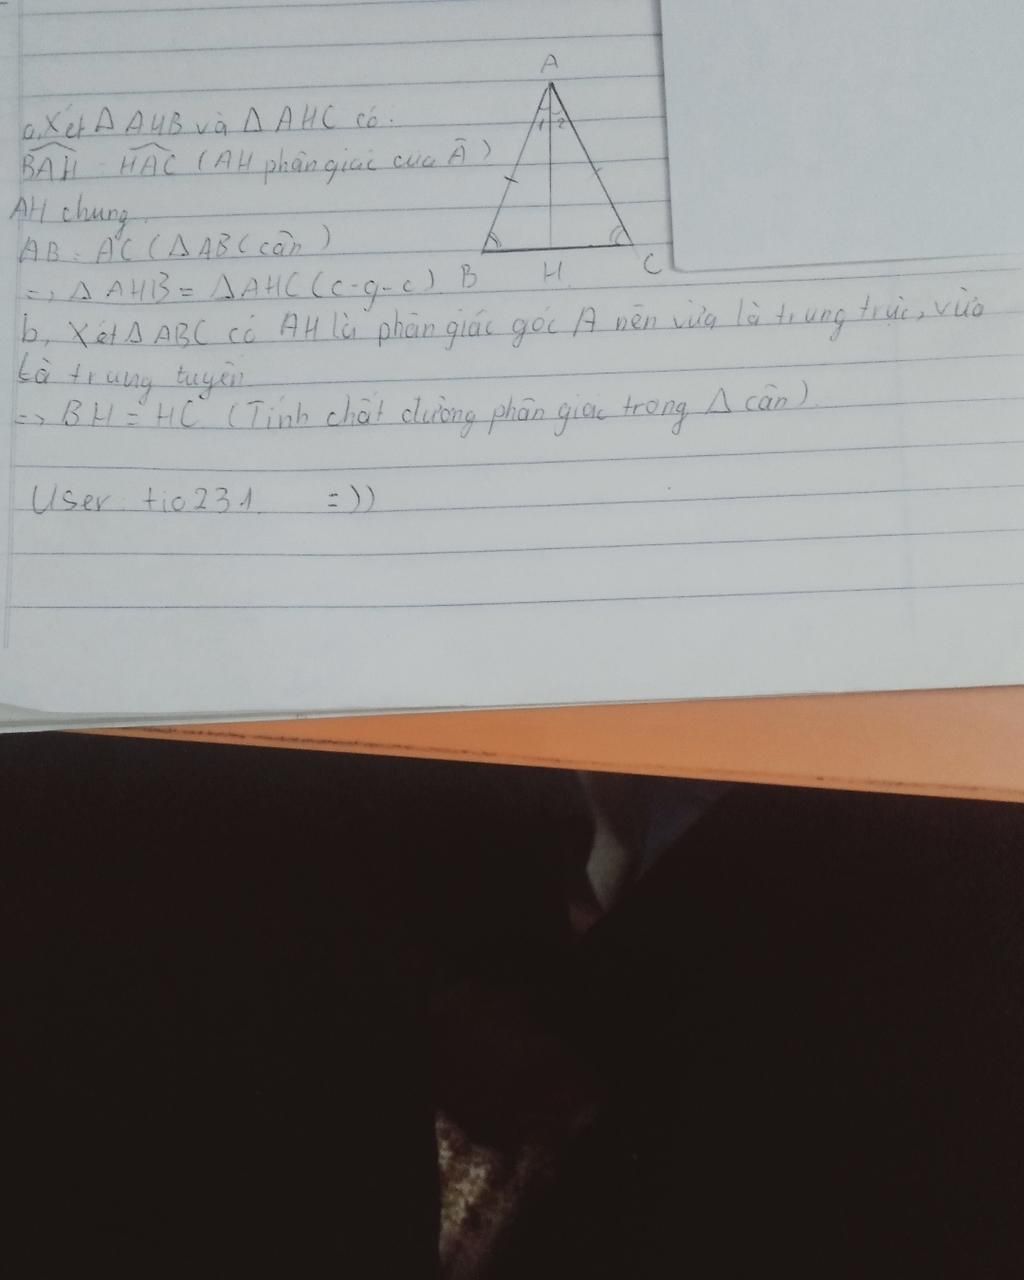 a, Xét Δ AHB và Δ AHC có:
BAH = HAC (AH phân giác của Â)
AH chung
AB = AC (Δ ABC cân)
=> Δ AHB = Δ AHC (c-g-c)
b, Xét Δ ABC có AH là phân giác góc A nên vừa là trung trực, vừa
là trung tuyến
=> BH = HC (Tính chất đường phân giác trong Δ cân)
User: tio231 =))
A
1 2
B H C